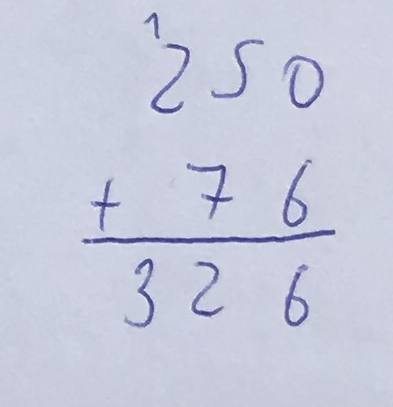 1
250
+ 76
326